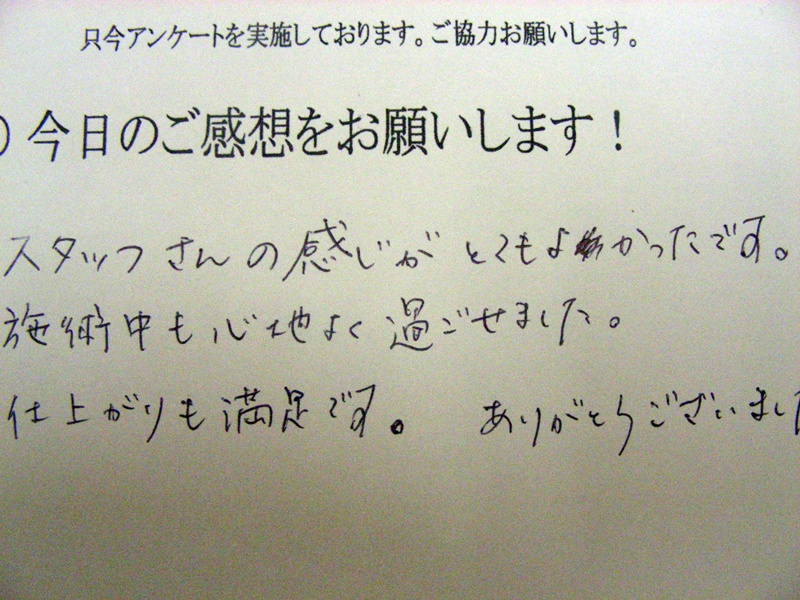 只今アンケートを実施しております。ご協力お願いします。
) 今日のご感想をお願いします！
スタッフさんの感じがとてもよかったです。
施術中も心地よく過ごせました。
仕上がりも満足です。 ありがとうございました